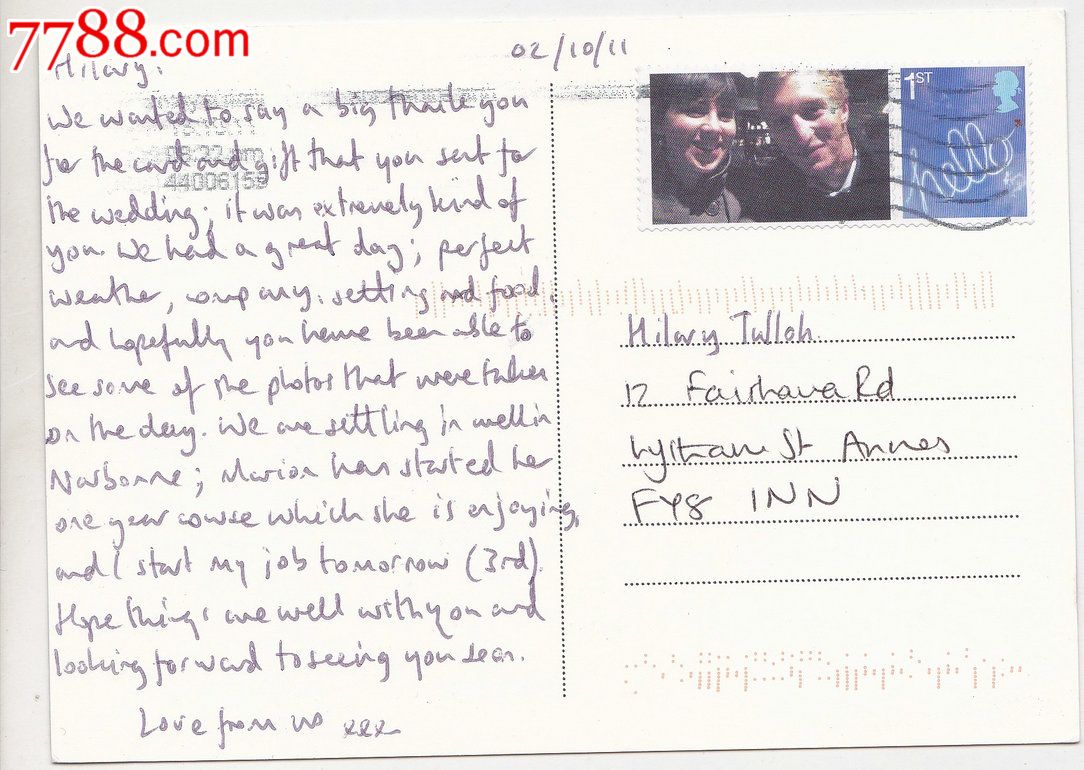 7788.com
02/10/11
Hilary.
We wanted to say a big thank you
for the card and gift that you sent for
the wedding; it was extremely kind of
you. We had a great day; perfect
weather, company, setting and food.
and hopefully you have been able to
see some of the photos that were taken
on the day. We are settling in well in
Narbonne; Marion has started her
one year course which she is enjoying,
and I start my job tomorrow (3rd).
Hope things are well with you and
looking forward to seeing you soon.
Love from us xxx
44006159
1ST
hello
Hilary Tulloh
12 Fairhaven Rd
Lytham St Annes
FY8 1NN